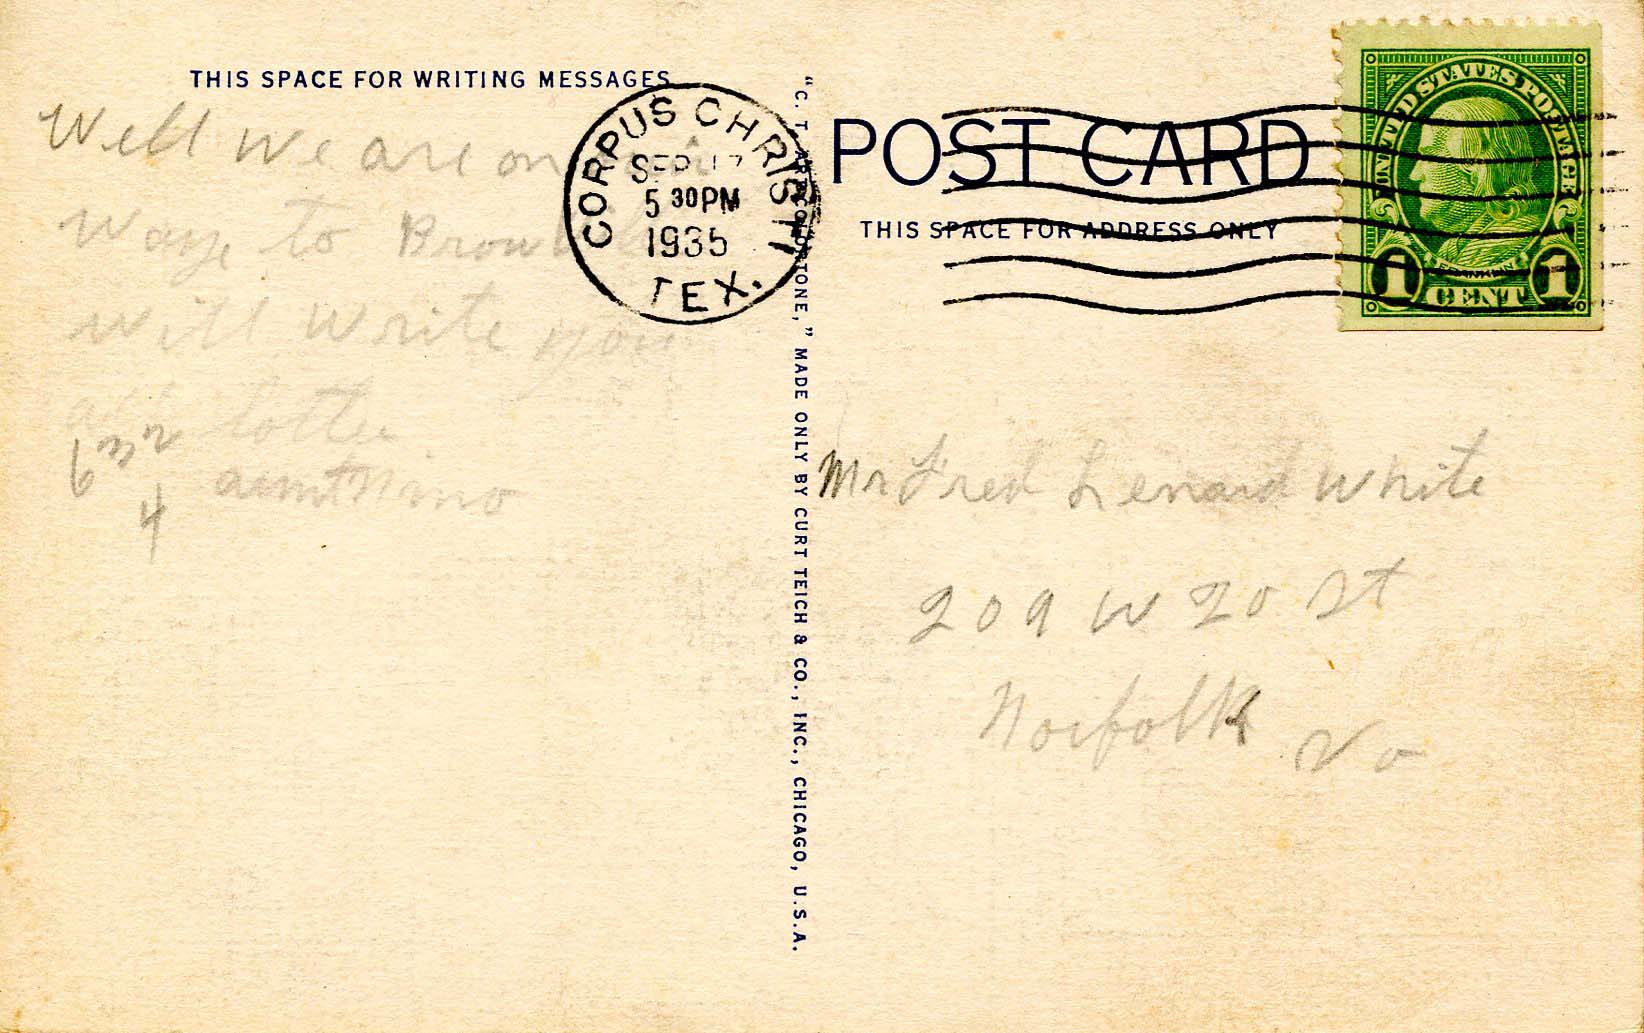 THIS SPACE FOR WRITING MESSAGES
Well we are on
Way to
Will Write you
letter
aunt
6
4
CORPUS CHRISTI
SEP 17
5 30PM
1935
TEX.
"C. T. ART-COLORTONE," MADE ONLY BY CURT TEICH & CO., INC., CHICAGO, U.S.A.
POST CARD
THIS SPACE FOR ADDRESS ONLY
UNITED STATES POSTAGE
FRANKLIN
1 CENT 1
Mr Fred Lenard White
209 W 20 St
Norfolk Va